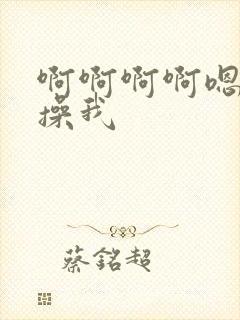 啊啊啊啊嗯
操我
蔡銘超